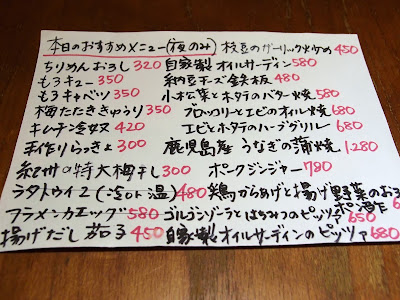 本日のおすすめメニュー(夜のみ) 枝豆のガーリック炒め 450
ちりめんおろし 320 自家製オイルサーディン 580
もろキュー 350 納豆チーズ鉄板 480
もろキャベツ 350 小松菜とホタテのバター焼 580
梅たたききゅうり 350 ブロッコリーとエビのオイル焼 680
キムチン冷奴 420 エビとホタテのハーブグリル 680
手作りらっきょ 300 鹿児島産 うなぎの蒲焼 1.280
紀州の特大梅干し 300 ポークジンジャー 780
ラタトゥイユ(冷or温) 480 鶏からあげと揚げ野菜のおろ
ポン酢作 6
フラメンカエッグ 580 ゴルゴンゾーラとはちみつのピッツァ 650
揚げだし茄子 450 自家製オイルサーディンのピッツァ 680